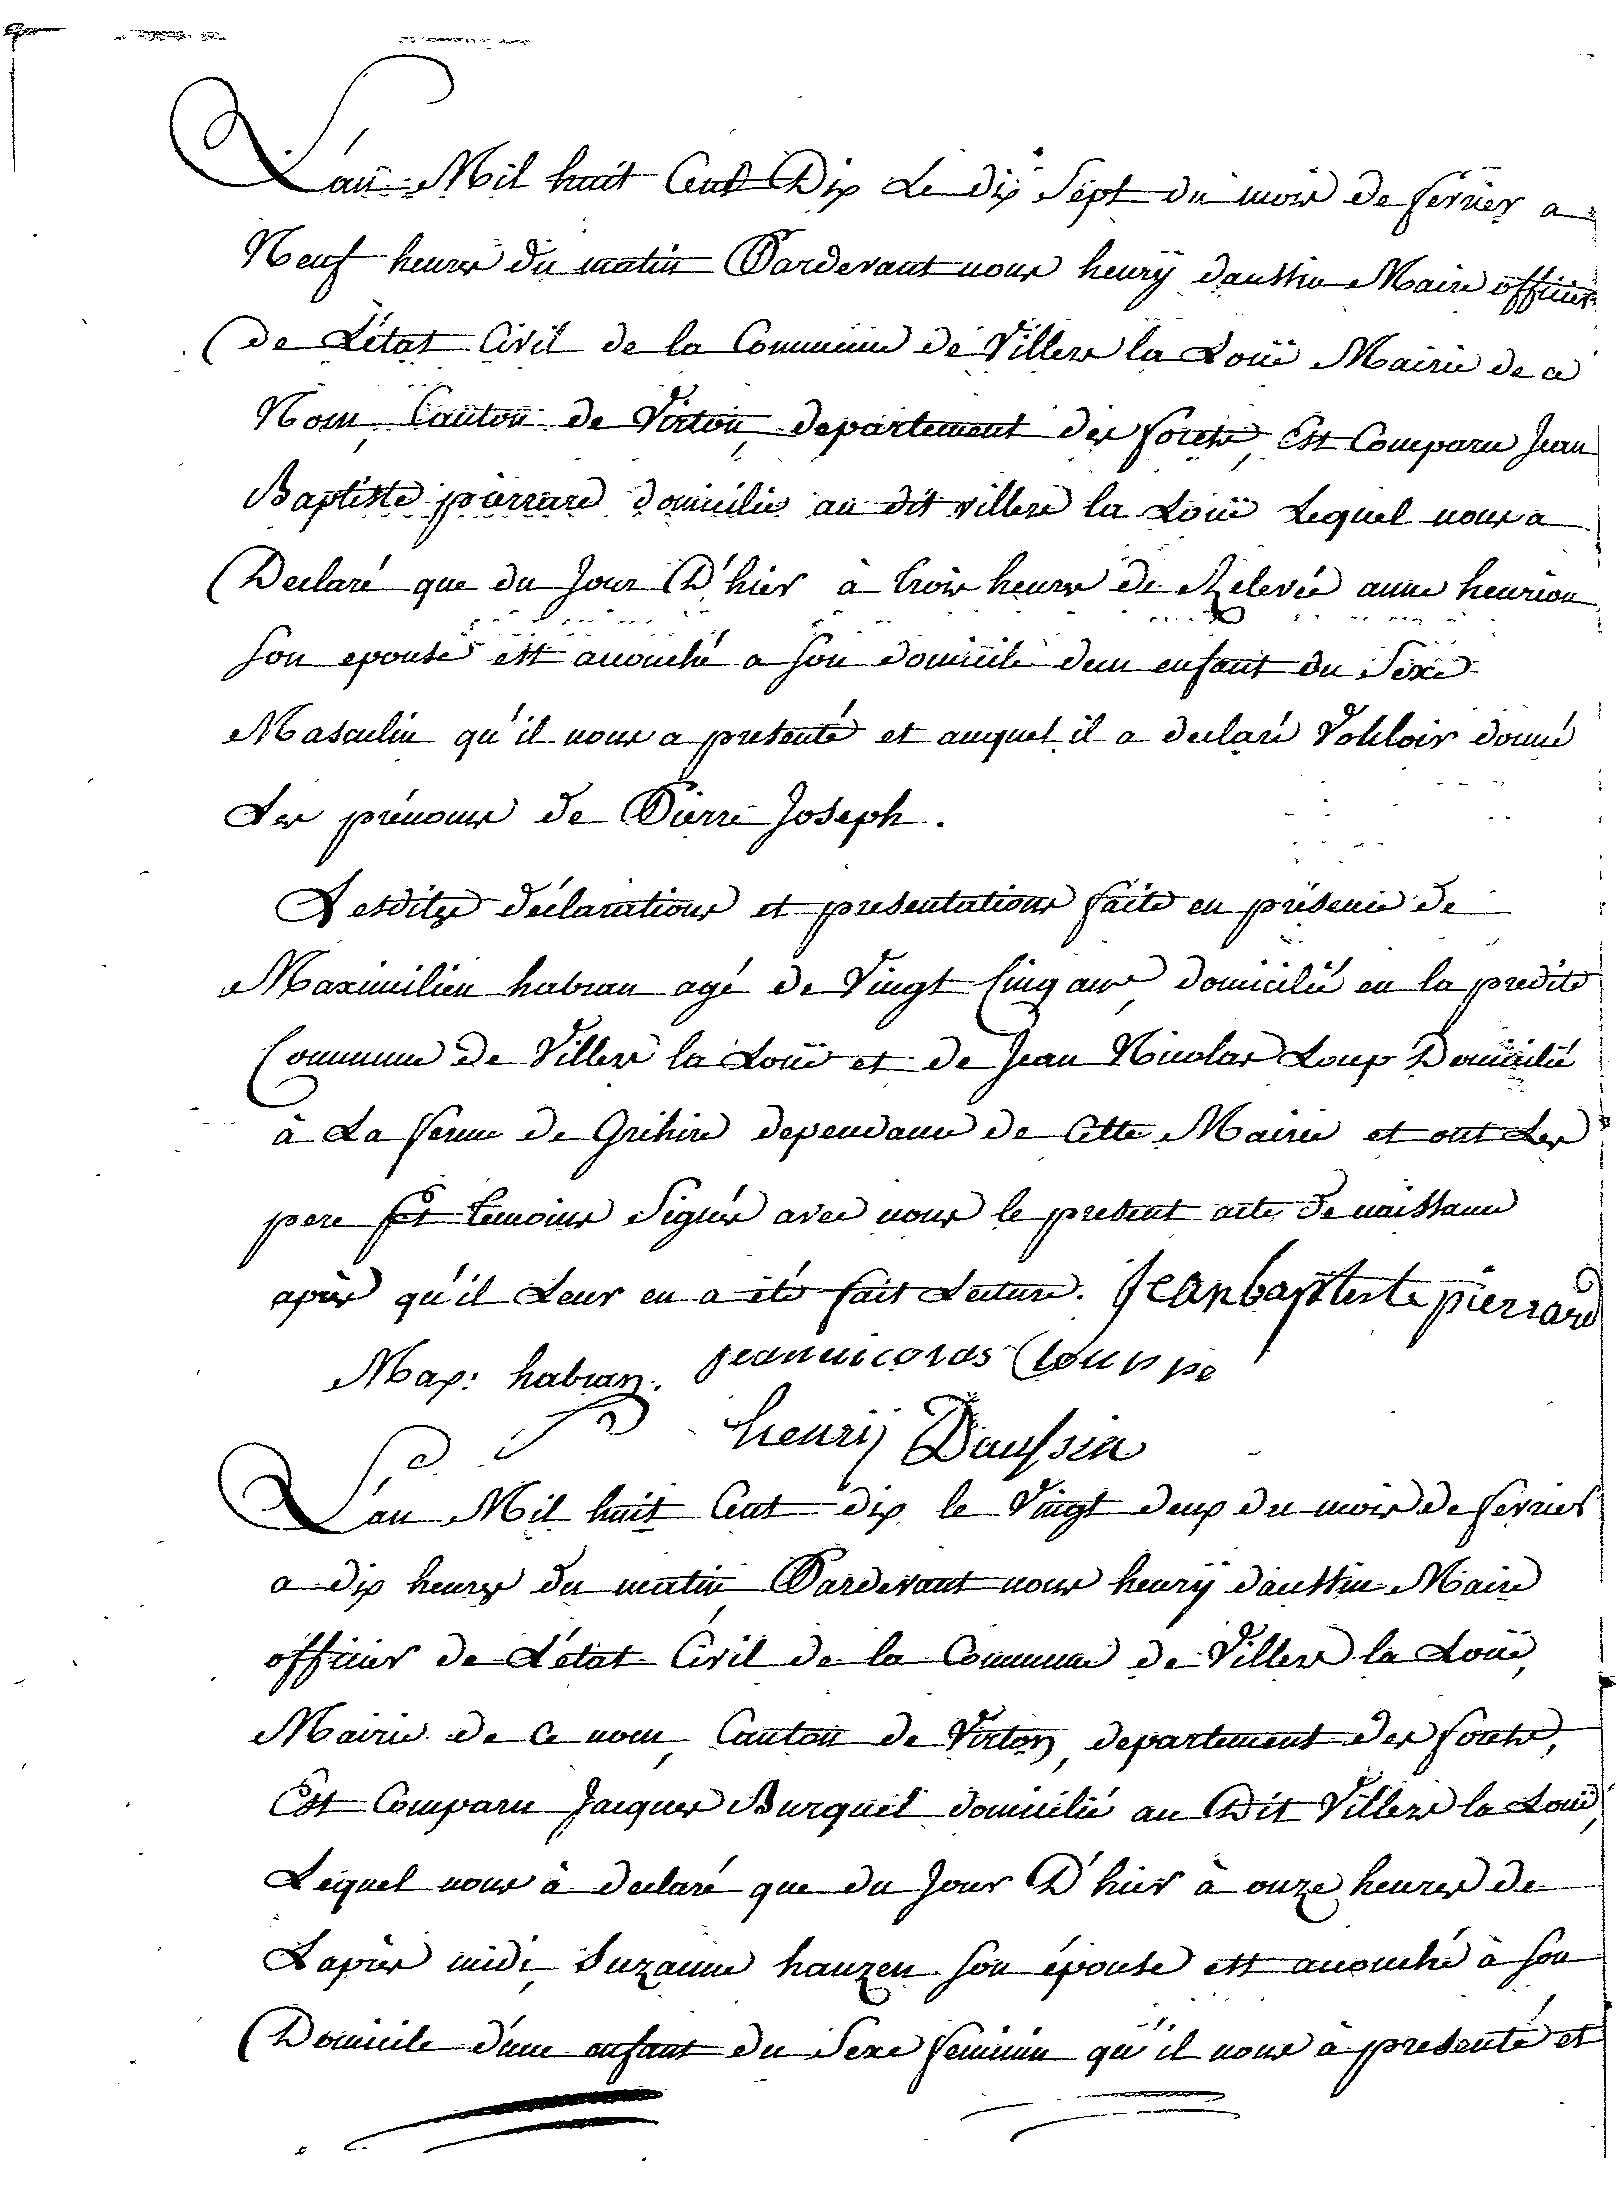 L'an Mil huit Cent Dix Le dix Sept du mois de fevrier a
Neuf heures du matin Pardevant nous henrÿ daussin Maire officier
de L'état Civil de la Commune de Villers la Loüe Mairie de ce
Nom, Canton de Virton, departement des forets, Est Comparu Jean
Baptiste pierrard domicilié au dit villers la Loüe Lequel nous a
Declaré que du Jour D'hier à trois heures de Relevée anne henrion
son epouse est accouché a son domicile d'un enfant du Sexe
Masculin qu'il nous a presenté et auquel il a declaré Vouloir donné
Les prénoms de Pierre Joseph.
Lesdites déclarations et presentations faite en présence de
Maximilien habran agé de Vingt Cinq ans, domicilié en la predite
Commune de Villers la Loüe et de Jean Nicolas Loup Domicilié
à La ferme de Grihire dependance de Cette Mairie et ont Les
pere Et temoins Signés avec nous le present acte de naissance
après qu'il Leur en a été fait Lecture. Jeanbaptiste pierrard
Max: habran. jeannicolas louppe
henrij Daussin
L'an Mil huit Cent dix le Vingt deux du mois de fevrier
a dix heures du matin Pardevant nous henrÿ daussin Maire
officier de L'état Civil de la Commune de Villers la Loüe,
Mairie de Ce nom, Canton de Virton, departement des forets,
Est Comparu Jacques Burquel domicilié au Dit Villers la Loüe,
Lequel nous à declaré que du Jour D'hier à onze heures de
Laprès midi, Suzanne hanzen son épouse est accouché à son
Domicile d'une enfant du Sexe feminin qu'il nous à presenté et